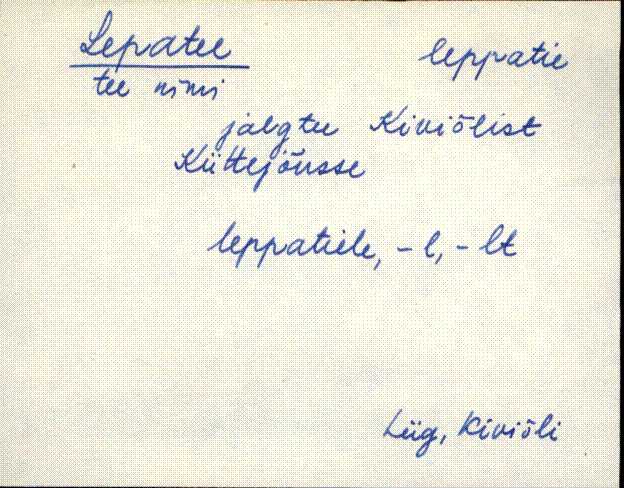 Lepatee leppatie
tee nimi
jalgtee Kiviõlist
Küttejõusse
leppatiele, -l, -lt
Lüg, Kiviõli